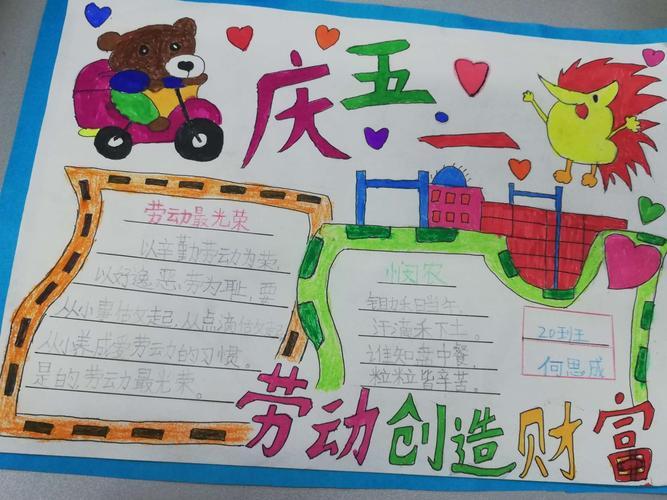 庆五一
劳动最光荣
以辛勤劳动为荣,
以好逸恶劳为耻,要
从小事做起,从点滴做起
从小养成爱劳动的习惯。
是的,劳动最光荣。
悯农
锄禾日当午,
汗滴禾下土。
谁知盘中餐,
粒粒皆辛苦。
20班
何思成
劳动创造财富